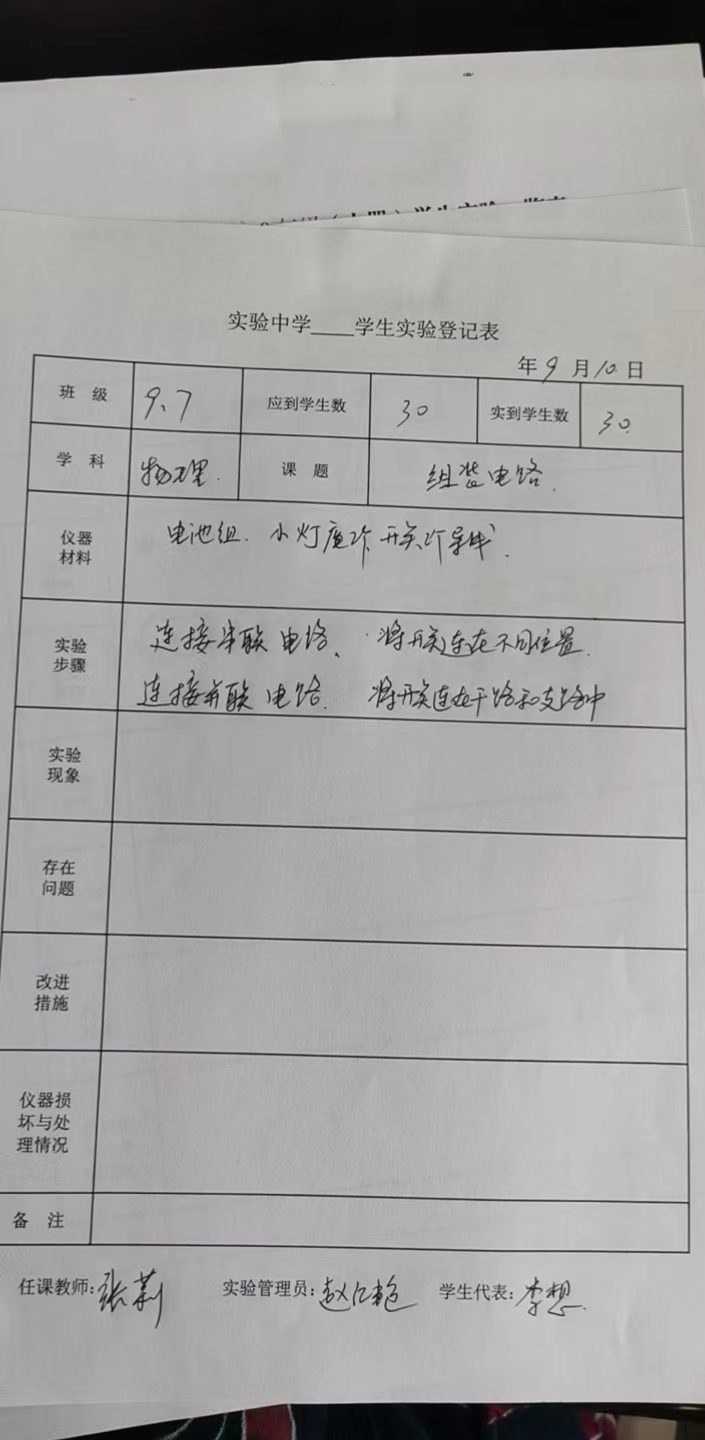 实验中学____学生实验登记表
年9月10日
班 级 9.7 应到学生数 30 实到学生数 30.
学 科 物理. 课 题 组装电路.
仪器材料 电池组. 小灯座2个 开关2个 导线.
实验步骤 连接串联电路、将开关连在不同位置.
连接并联电路. 将开关连在干路和支路中
实验现象
存在问题
改进措施
仪器损坏与处理情况
备 注
任课教师:张莉 实验管理员:赵仁艳 学生代表:李想.